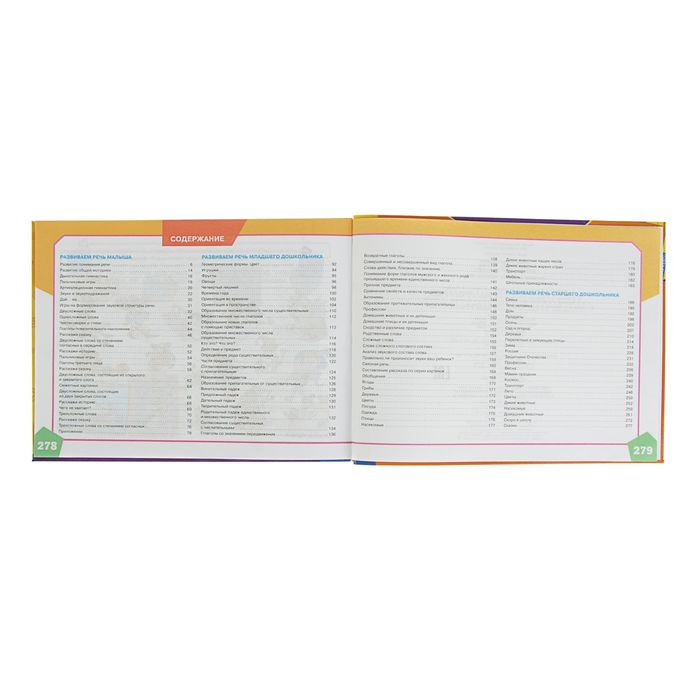 СОДЕРЖАНИЕ
РАЗВИВАЕМ РЕЧЬ МАЛЫША
Развитие понимания речи 6
Развитие общей моторики 14
Дыхательная гимнастика 16
Пальчиковые игры 18
Артикуляционная гимнастика 20
Звуки и звукоподражания 22
Игры на формирование звуковой структуры речи
Двусложные слова 32
Односложные слова 40
Чистоговорки и стихи 42
Глаголы повелительного наклонения 44
Расскажи сказку 46
Двусложные слова со стечением
согласных в середине слова 50
Расскажи историю 52
Пальчиковые игры 54
Глаголы третьего лица 56
Расскажи сказку 58
Двусложные слова, состоящие из открытого
и закрытого слога 62
Сюжетные картинки 64
Двусложные слова, состоящие
из двух закрытых слогов 66
Расскажи историю 68
Чего не хватает? 69
Трехсложные слова 70
Расскажи сказку 72
Трехсложные слова со стечением согласных 76
Приложение 78
РАЗВИВАЕМ РЕЧЬ МЛАДШЕГО ДОШКОЛЬНИКА
Геометрические формы. Цвет 82
Игрушки 84
Фрукты
Овощи
Четвертый лишний
Времена года 100
Ориентация во времени 102
Ориентация в пространстве 104
Образование множественного числа существительных 110
Множественное число глаголов 112
Образование новых глаголов
с помощью приставок 113
Образование множественного числа
существительных 114
Кто это? Что это? 116
Действие и предмет 118
Определение рода существительных 120
Части предмета 122
Согласование существительных
с прилагательными 124
Назначение предметов 125
Образование прилагательных от существительных 126
Винительный падеж 128
Предложный падеж 129
Дательный падеж 130
Творительный падеж 131
Родительный падеж единственного
и множественного числа 132
Согласование существительных
с числительными 134
Глаголы со значением передвижения 136
278
Возвратные глаголы 138
Совершенный и несовершенный вид глагола 139
Слова действия, близкие по значению 140
Понимание форм глаголов мужского и женского рода
прошедшего времени единственного числа
Признак предмета
Сравнение свойств и качеств предметов
Антонимы
Образование притяжательных прилагательных
Профессии
Домашние животные и их детеныши
Домашние птицы и их детеныши
Сходство и различие предметов
Родственные слова
Сложные слова
Слова сложного слогового состава
Анализ звукового состава слова
Правильно ли произносит звуки ваш ребенок?
Связная речь
Составление рассказа по серии картинок
Обобщения
Ягоды
Грибы
Деревья
Цветы
Посуда
Одежда 175
Птицы 176
Насекомые 177
Дикие животные наших лесов 178
Дикие животные жарких стран 179
Транспорт
Мебель
Школьные принадлежности
РАЗВИВАЕМ РЕЧЬ СТАРШЕГО ДОШКОЛЬНИКА
Семья
Тело человека
Дом
Продукты
Осень
Сад и огород
Деревья
Перелетные и зимующие птицы
Зима
Россия
Защитники Отечества
Профессии
Весна
Мамин праздник
Космос
Транспорт
Лето
Цветы
Дикие животные
Насекомые
Домашние животные 261
Скоро в школу
Сказки 277
279